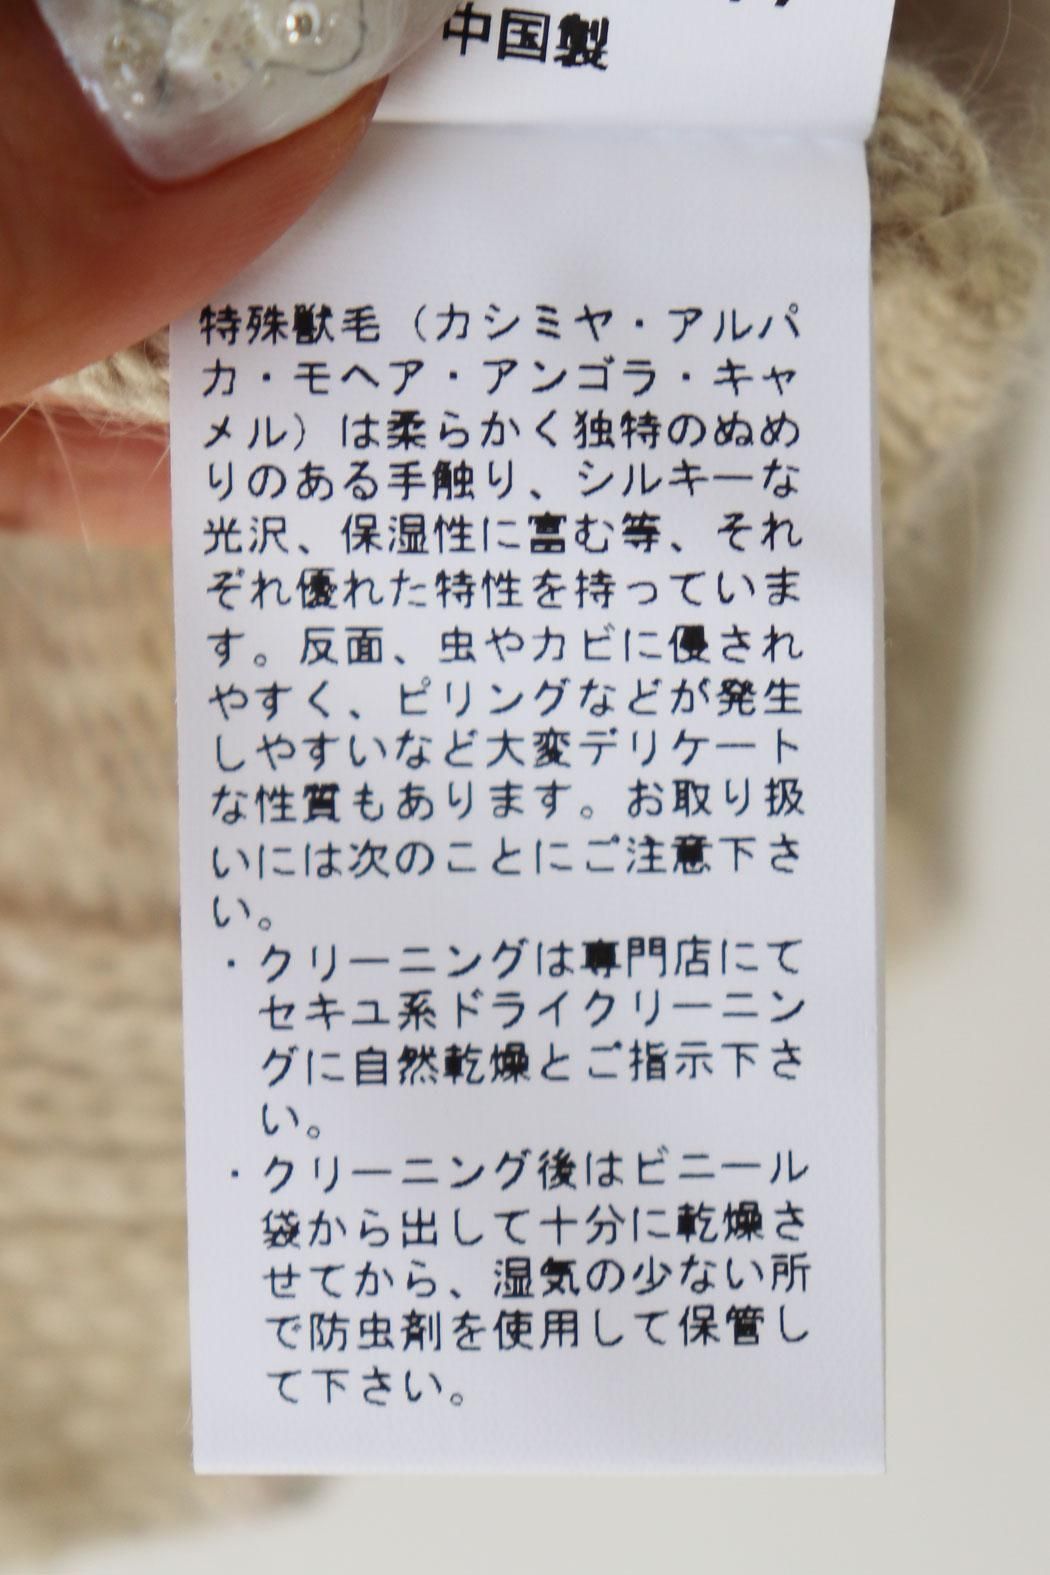 中国製
特殊獣毛（カシミヤ・アルパ
カ・モヘア・アンゴラ・キャ
メル）は柔らかく独特のぬめ
りのある手触り、シルキーな
光沢、保湿性に富む等、それ
ぞれ優れた特性を持っていま
す。反面、虫やカビに優され
やすく、ピリングなどが発生
しやすいなど大変デリケート
な性質もあります。お取り扱
いには次のことにご注意下さ
い。
・クリーニングは専門店にて
セキユ系ドライクリーニン
グに自然乾燥とご指示下さ
い。
・クリーニング後はビニール
袋から出して十分に乾燥さ
せてから、湿気の少ない所
で防虫剤を使用して保管し
て下さい。